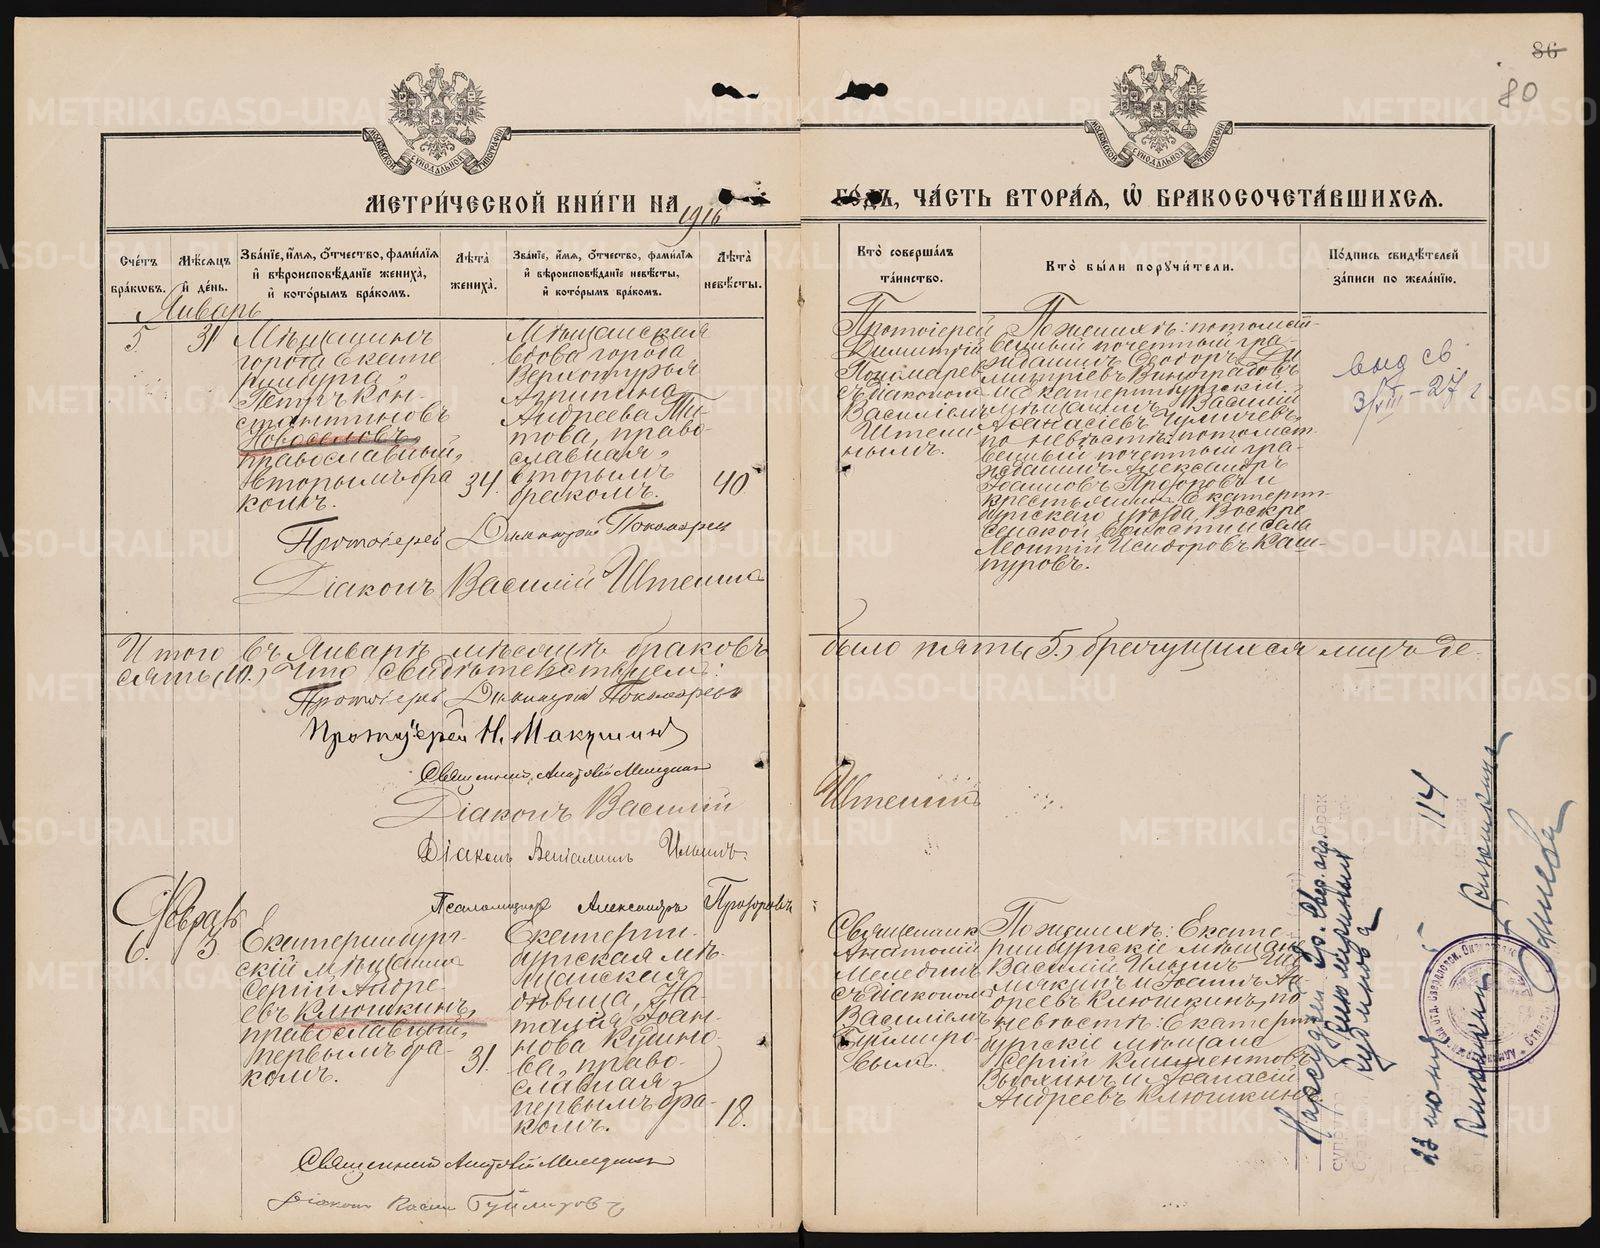 86
80
МЕТРИ́ЧЕСКОЙ КНИ́ГИ НА 1916
ГОДЪ, ЧА́СТЬ ВТОРА́Я, Ѡ БРАКОСОЧЕТА́ВШИХСЯ.
Сче́тъ бра́кѡвъ.
Мѣ́сяцъ и̂ де́нь.
Зва́нїе, и̂́мя, о̂́тчество, фами́лїя и̂ вѣроисповѣ́данїе жениха̀, и̂ кото́рымъ бра́комъ.
Лѣ́та жениха̀.
Зва́нїе, и̂́мя, о̂́тчество, фами́лїя и̂ вѣроисповѣ́данїе невѣ́сты, и̂ кото́рымъ бра́комъ.
Лѣ́та невѣ́сты.
Кто̀ соверша́лъ та́инство.
Кто̀ бы́ли поручи́тели.
По́дпись свидѣ́телей за́писи по жела́нїю.
Январь
5.
31
Мѣщанинъ
города Екате
ринбурга,
Петръ Кон-
стантиновъ
Новоселовъ,
православный,
вторымъ бра
комъ.
34.
Мѣщанская
вдова города
Верхотурья
Агрипина
Андреева Ти-
това, право-
славная,
вторымъ
бракомъ.
40
Протоіерей
Димитрій
Пономаревъ
съ діакономъ
Василіемъ
Штенинымъ.
По женихѣ: потомст-
венный почетный гра-
жданинъ Ѳеодоръ Ди
митріевъ Виноградовъ
и екатеринбургскій
мѣщанинъ Василій
Аѳанасіевъ
по невѣстѣ: потомст
венный почетный гра-
жданинъ Александръ
Іоанновъ Прозоровъ и
крестьянинъ Екатерин-
бургскаго уѣзда, Воскре
сенской волости и села
Леонтій Исидоровъ Каш-
пуровъ.
выд св
3/VIII-27 г
Протоіерей Димитрій Пономаревъ
Діаконъ Василій Штенинъ
Итого въ Январѣ мѣсяцѣ браковъ было пять (5.) брачущихся лицъ де-
сять (10.) Что свидѣтельствуемъ:
Протоіерей Димитрій Пономаревъ
Протоіерей Н. Макушинъ
Священникъ Анатолій Мелединъ
Діаконъ Василій Штенинъ
Діаконъ Веніаминъ Ильинъ.
Псаломщикъ Александръ Прозоровъ
Февраль
6.
3
Екатеринбург-
скій мѣщанинъ
Сергій Андре
евъ Клюшкинъ,
православный,
первымъ бра-
комъ.
31.
Екатерин-
бургская мѣ-
щанская
дѣвица, На-
талія Іоан-
нова Кудино-
ва, право-
славная,
первымъ бра-
комъ.
18.
Священникъ
Анатолій
Мелединъ
съ діакономъ
Василіемъ
По женихѣ: Екате-
ринбургскіе мѣщане
Василій Ильинъ
и Іоаннъ Ан
дреевъ Клюшкинъ, по
невѣстѣ: Екатерин
бургскіе мѣщане
Сергій Климентовъ
и Аѳанасій
Андреевъ Клюшкинъ
Священникъ Анатолій Мелединъ
114